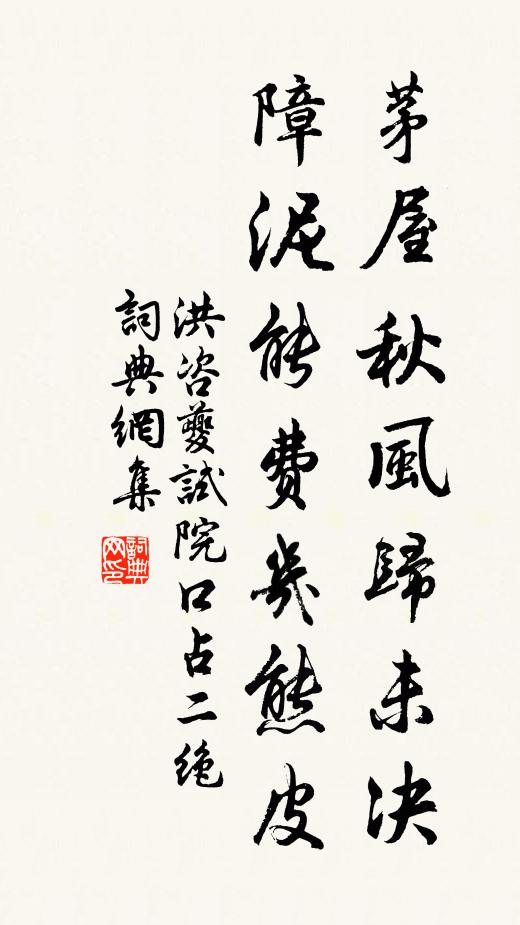 茅屋秋風歸未决
障泥能費幾熊皮
洪咨夔試院口占二绝
詞典網集
詞典网印